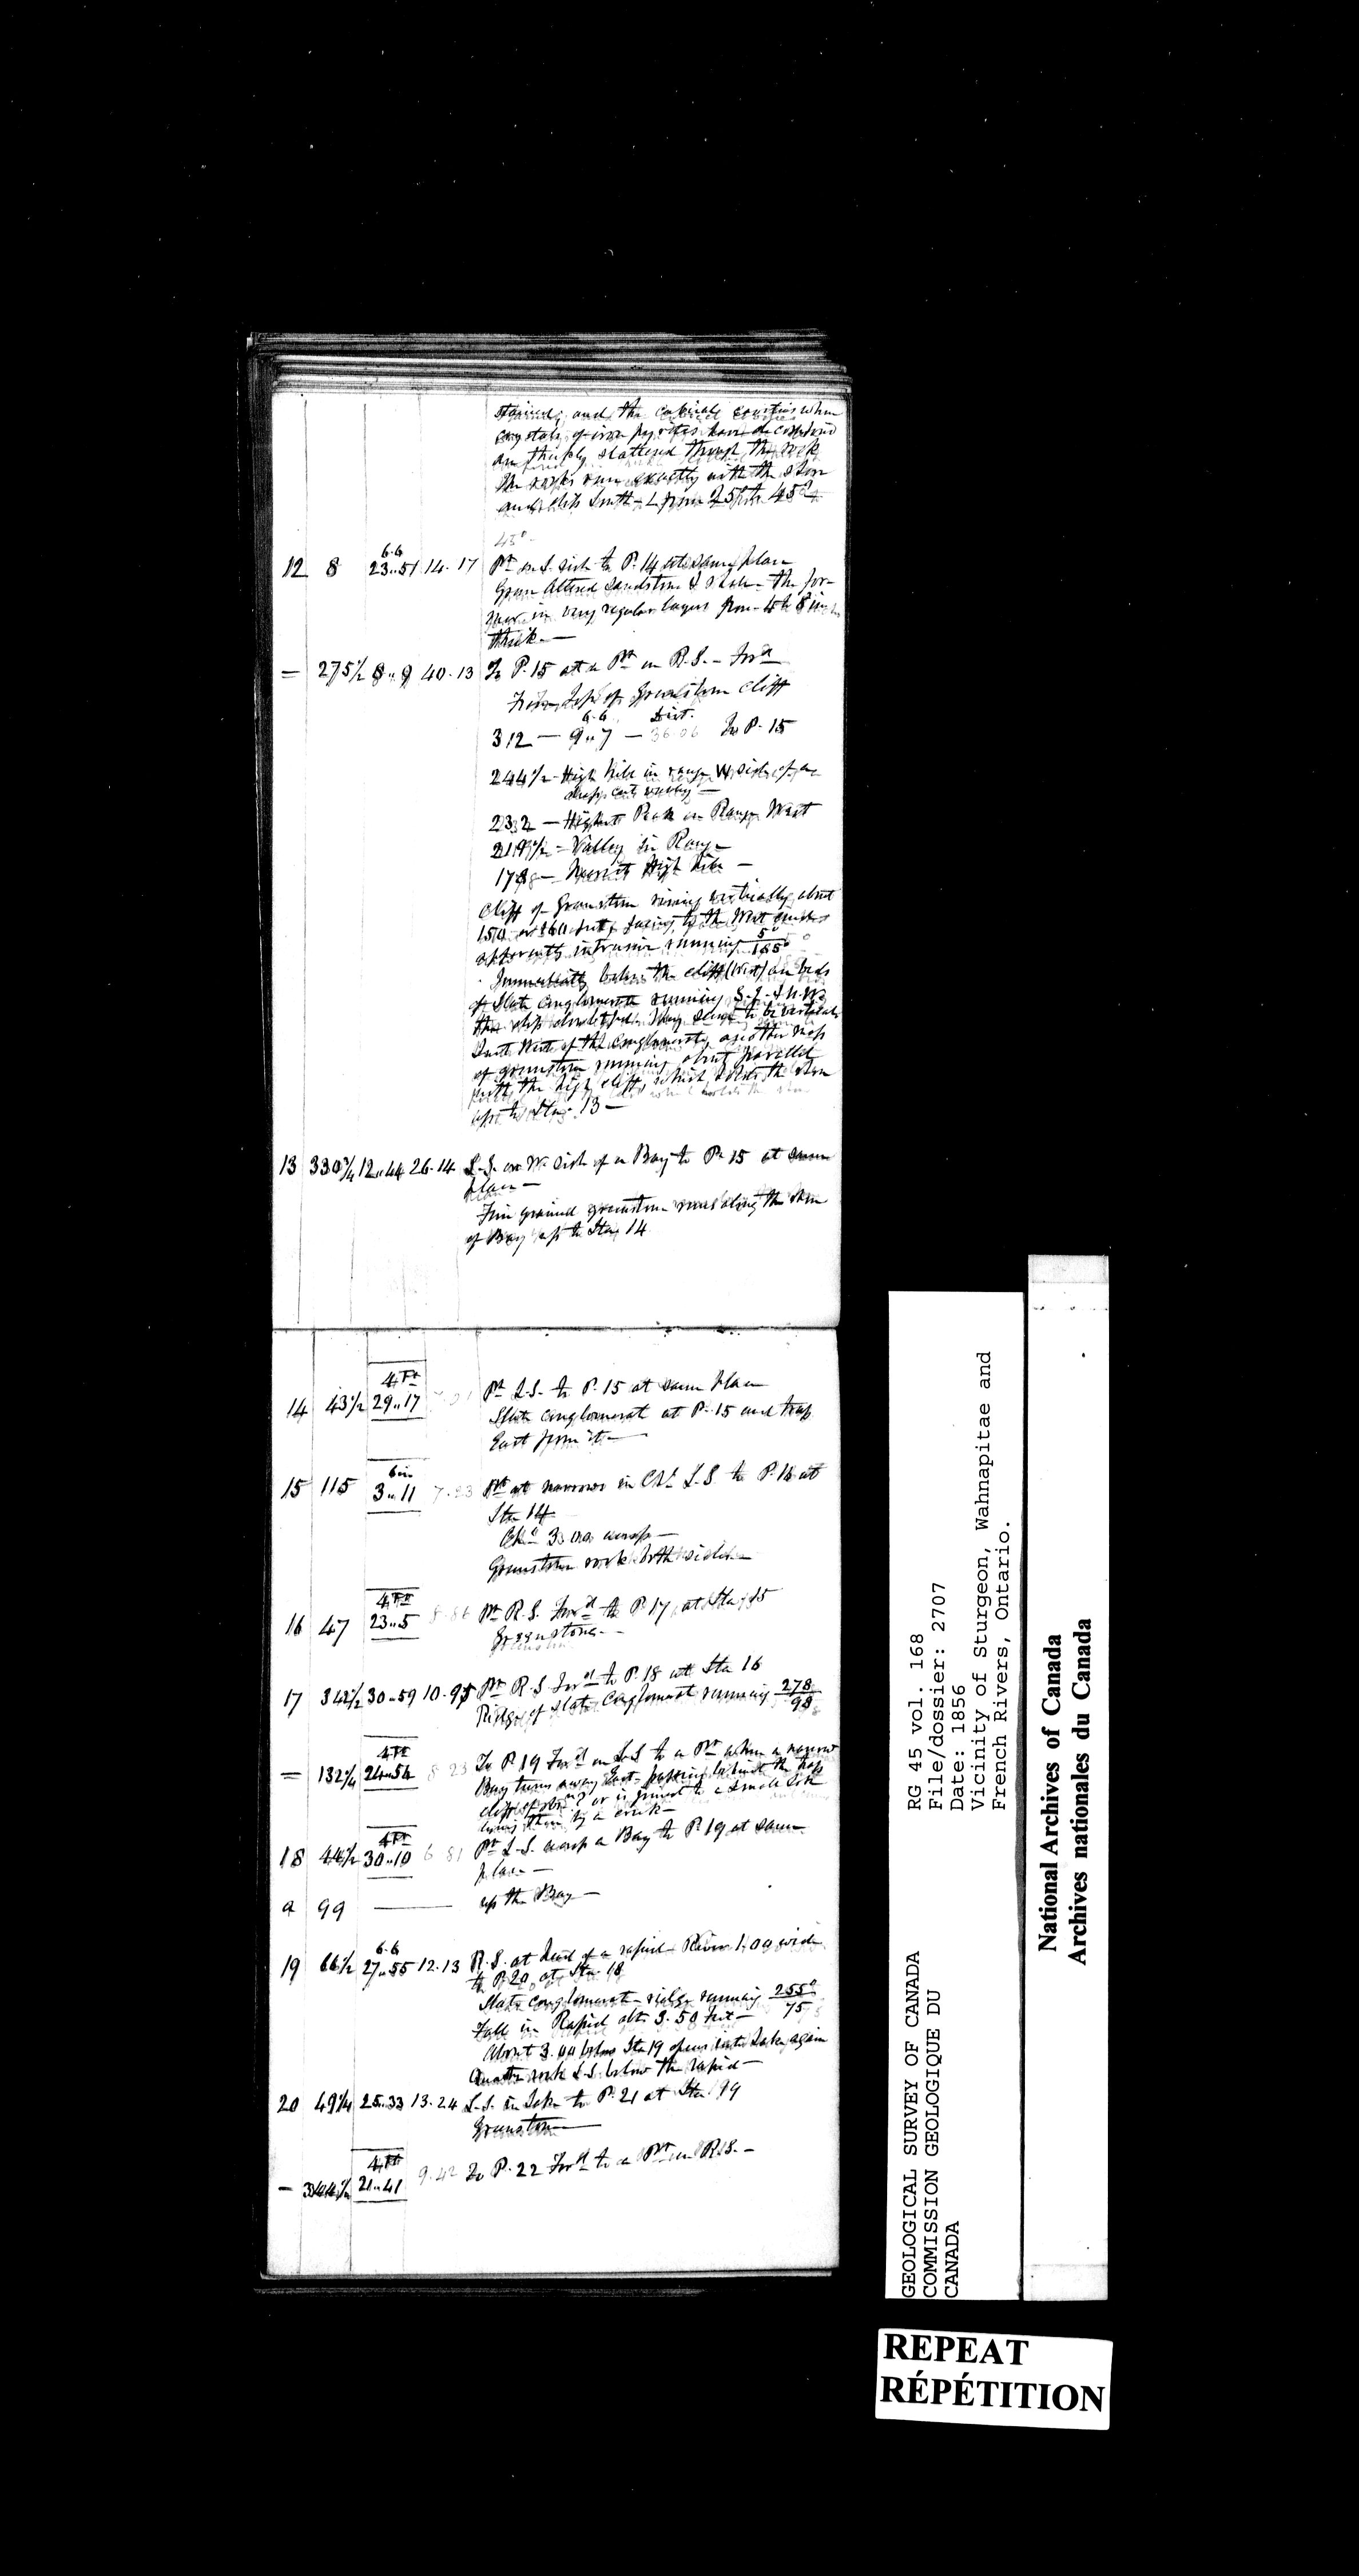 stained, and the cubical cavities where
crystals of iron pyrites have decomposed
are thickly scattered through the rock
The rocks run exactly with the shore
and dip South < from 25° to 45°
45°
12 8 6.6 23..51 14.17 Pt on L. side to P. 14 at same place
Green Altered Sandstone & slate - the for-
mer in very regular layers from 4 to 8 inches
thick. —
= 275½ 8..9 40.13 To P. 15 at a Pt on R.S. - Ford
From top of Greenstone cliff
6.6 Dist.
312 — 9..7 — 36.06 To P. 15
244½ - High hill in range W. side of a
deep cut valley —
232 — Highest Peak in Range West
219½ - Valley in Range
178 — Nearest High hill —
Cliff of Greenstone rising vertically about
150 or 160 feet, facing to the West
apparently intrusive running 5°/185°
Immediately below the cliff (West) are beds
of Slate Conglomerate running S.E. & N.W.
the dip doubtful. May seem to be vertical
Just West of the conglomerate another mass
of greenstone running about parallel
with the high cliff, which holds the shore
up to Sta. 13 —
13 330¾ 12..44 26.14 L.S. on W. side of a Bay to P. 15 at same
place —
Fine grained greenstone runs along the shore
of Bay up to Sta 14
14 43½ 4 Ft 29..17 Pt L.S. to P. 15 at same place
Slate conglomerate at P. 15 and trap
East from it —
15 115 6 in 3..11 7.23 Pt at narrows in Chl L.S. to P. 16 at
Sta 14
Chl 3.00 across —
Greenstone rock both sides —
16 47 4 Ft 23..5 8.86 Pt R.S. Ford to P. 17 at Sta 15
Greenstone. —
17 342½ 30..59 10.95 Pt R.S. Ford to P. 18 at Sta 16
Ridge of Slate Conglomerate running 278/98
= 132¼ 4 Ft 24..54 8 23 To P. 19 Ford on L.S. to a Pt where a narrow
Bay turns away East - passing behind the trap
cliff or is joined to a small lake
lying there by a creek —
18 44½ 4 Ft 30..10 6 81 Pt L.S. across a Bay to P. 19 at same
place —
a 99 —— up the Bay —
19 66½ 6.6 27..55 12.13 R.S. at head of a rapid - River 1.00 wide
to P. 20 at Sta. 18
Slate conglomerate - ridge running 255°/75
Fall in Rapid abt 3.50 feet —
About 3.00 below Sta 19 opens into Lake again
rock L.S. below the rapid —
20 49¼ 25..33 13.24 L.S. in Lake to P. 21 at Sta 19
Greenstone —
— 344½ 4 Ft 21..41 9.42 To P. 22 Ford to a Pt on R.S. —
GEOLOGICAL SURVEY OF CANADA
COMMISSION GEOLOGIQUE DU
CANADA
RG 45 vol. 168
File/dossier: 2707
Date: 1856
Vicinity of Sturgeon, Wahnapitae and
French Rivers, Ontario.
National Archives of Canada
Archives nationales du Canada
REPEAT
RÉPÉTITION